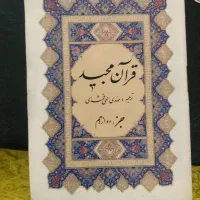 قرآن مجید
ترجمه: مهدی الهی قمشه‌ای
جزء دوازدهم